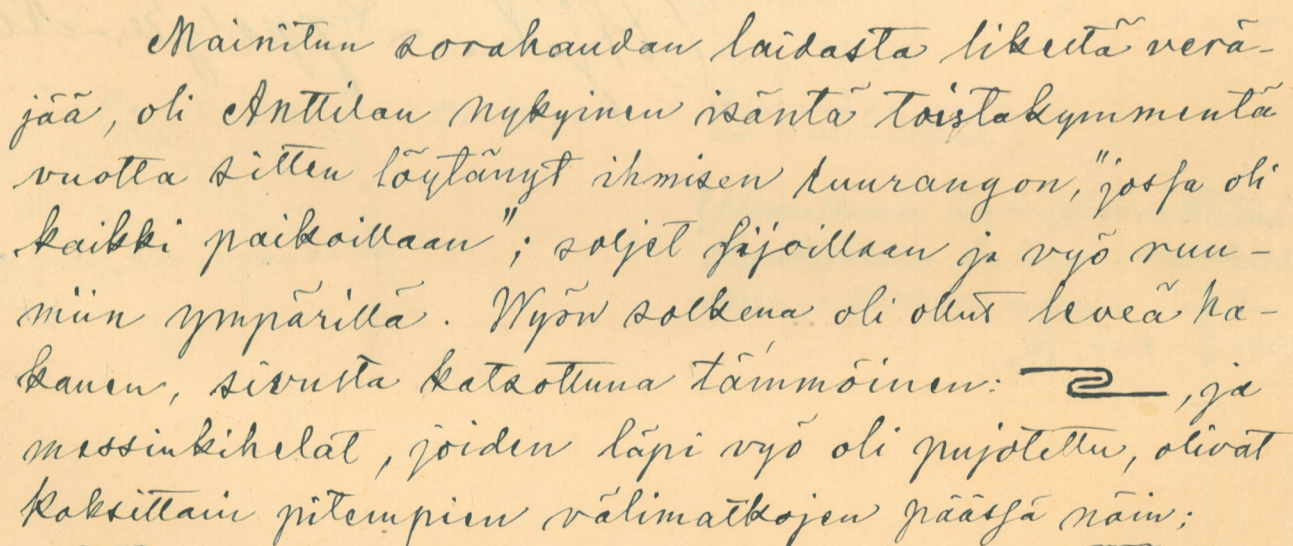 Mainitun sorahaudan laidasta likeltä verä-
jää, oli Anttilan nykyinen isäntä toistakymmentä
vuotta sitten löytänyt ihmisen luurangon, "jossa oli
kaikki paikoillaan"; soljet sijoillaan ja vyö ruu-
miin ympärillä. Wyön solkena oli ollut leveä ha-
kanen, sivusta katsottuna tämmöinen: , ja
messinkihelat, joiden läpi vyö oli pujotettu, olivat
kaksittain pitempien välimatkojen päässä näin: